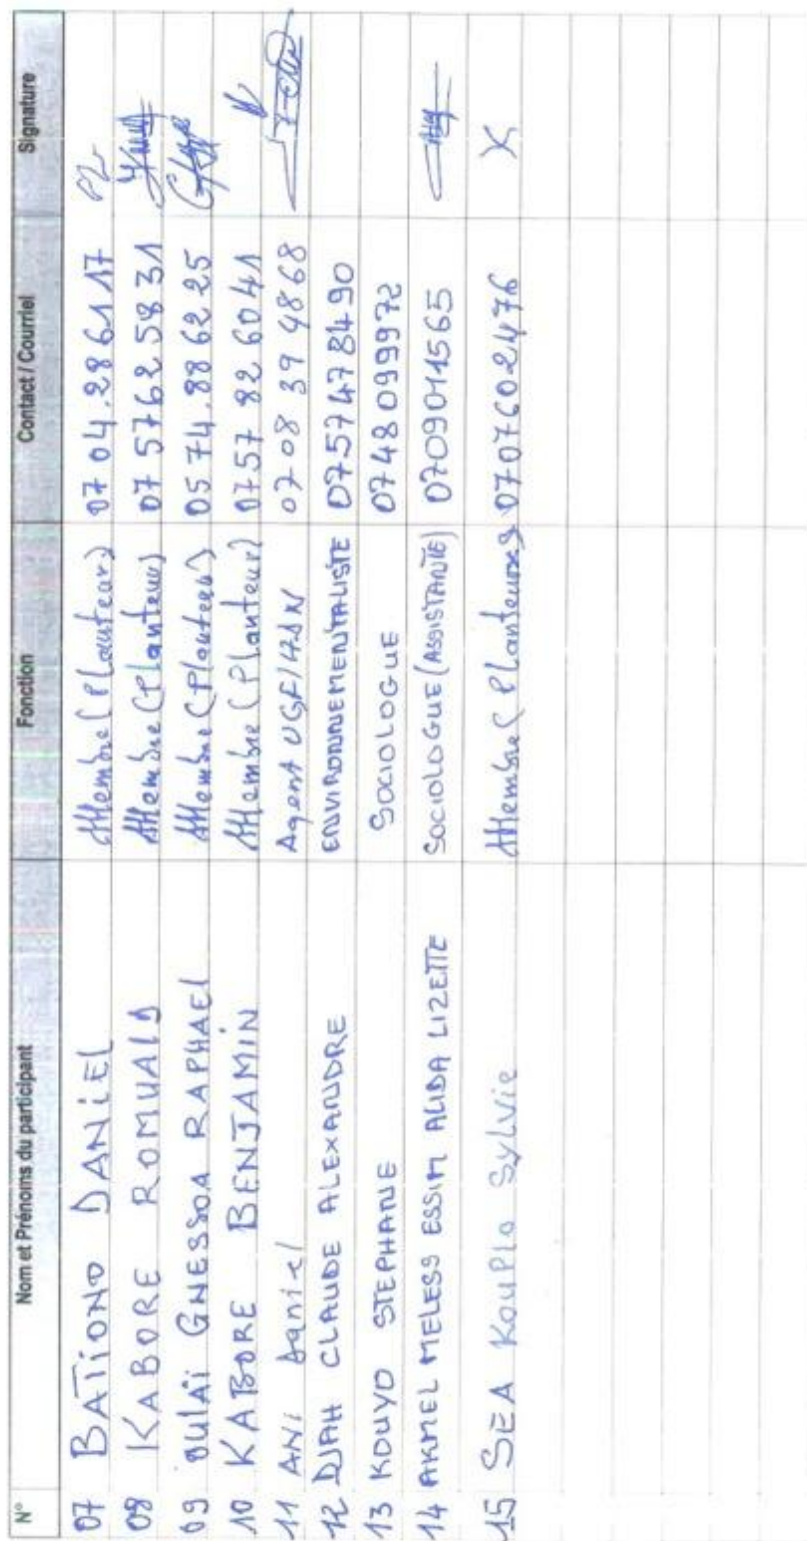 N° Nom et Prénoms du participant Fonction Contact / Courriel Signature
07 BATIONO DANIEL Membre (Planteur) 07 04.286117
08 KABORE ROMUALD Membre (Planteur) 07 57625831
09 OULAÏ GNESSOA RAPHAEL Membre (Planteur) 0574.886225
10 KABORE BENJAMIN Membre (Planteur) 0757 826041
11 ANI Daniel Agent 0708 39 4868
12 DJAH CLAUDE ALEXANDRE ENVIRONNEMENTALISTE 0757478490
13 KOUYO STEPHANE SOCIOLOGUE 0748099972
14 AKMEL MELESS ESSIM ALIDA LIZETTE SOCIOLOGUE (ASSISTANTE) 0709011565
15 SEA KOUPLO Sylvie Membre (Planteur) 0707602476 X